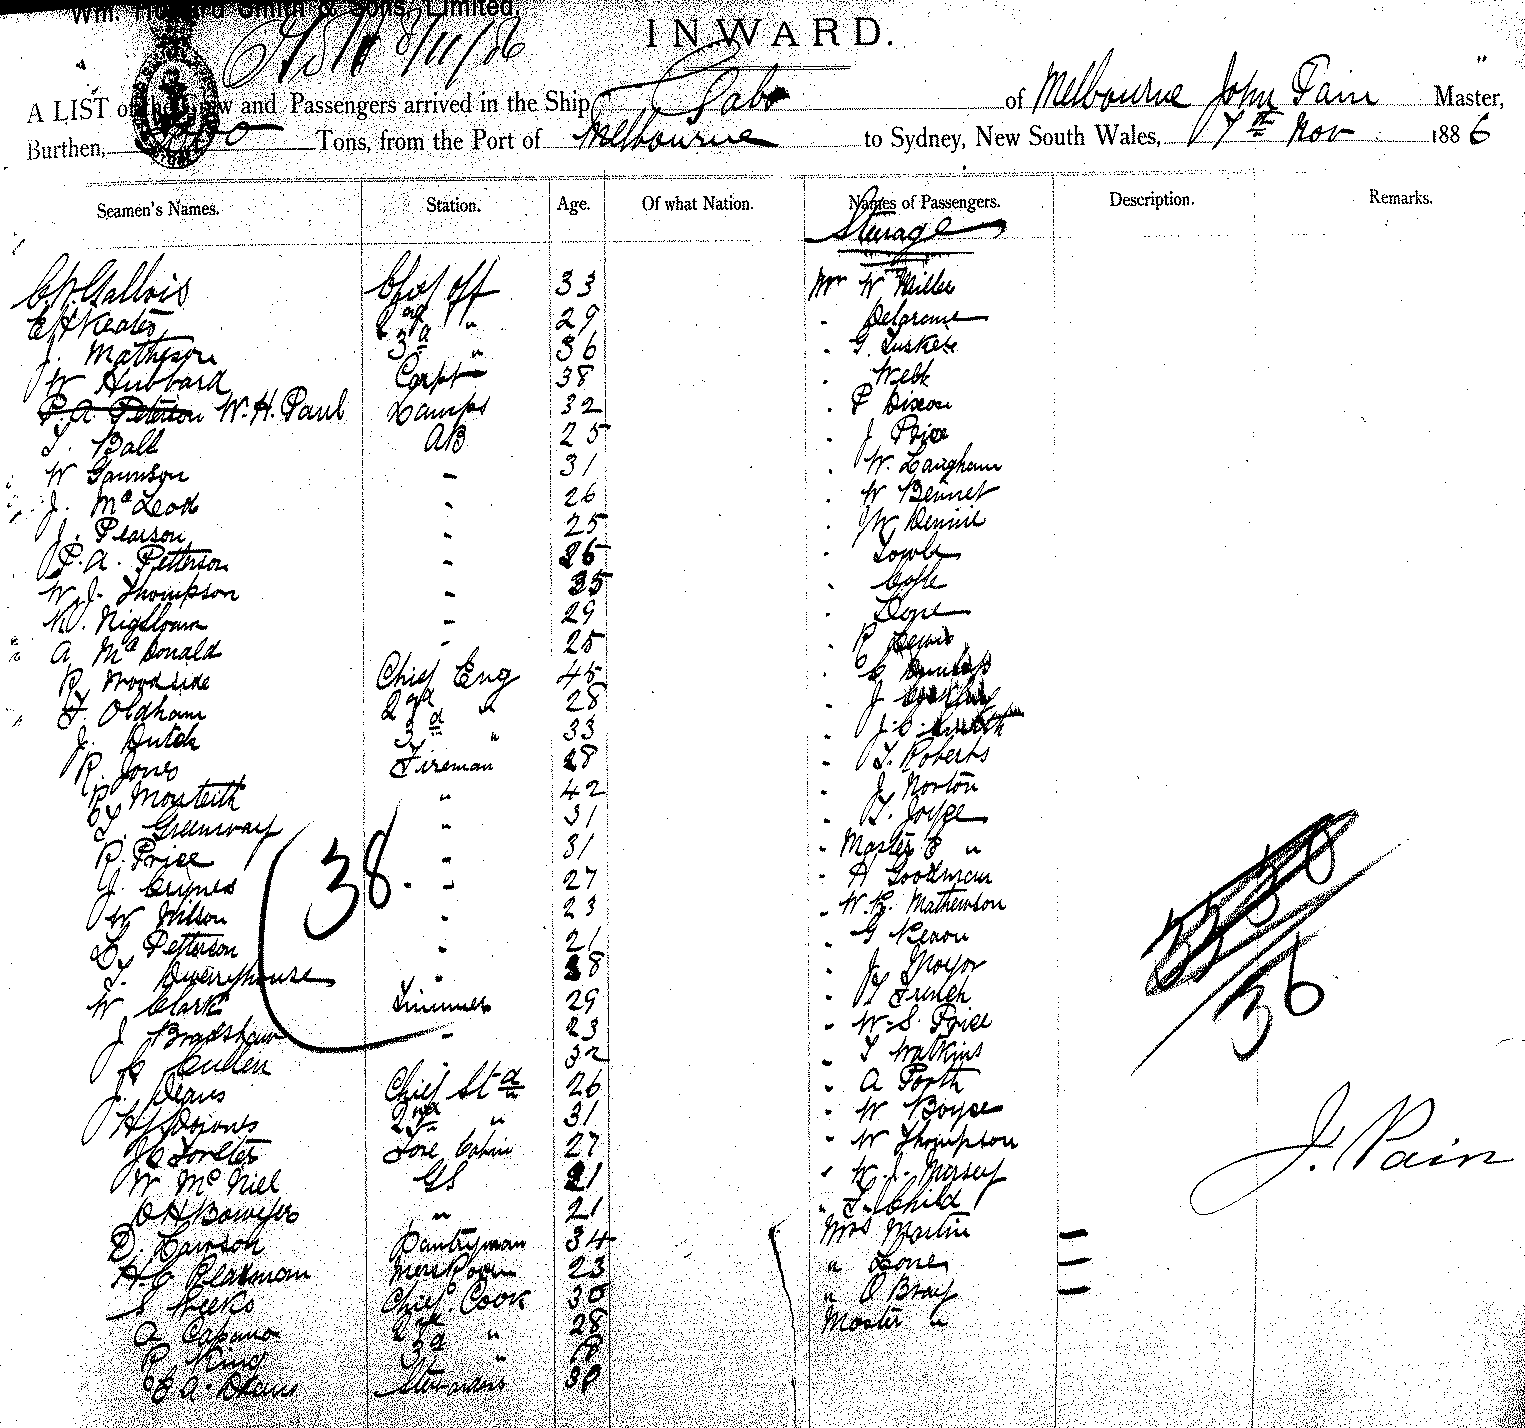 Wm. Howard Smith & Sons, Limited.
8/11/86
INWARD.
A LIST of the Crew and Passengers arrived in the Ship Gabo of Melbourne John Pain Master,
Burthen, Tons, from the Port of Melbourne to Sydney, New South Wales, 7th Nov 1886
Seamen's Names. Station. Age. Of what Nation. Names of Passengers. Description. Remarks.
Steerage
Gallois Chief off 33 Mr W Miller
E H Keates 2nd " 29 " Delarome
J. Matheson 3d " 36 " G.
W Hubbard Carpt 38 " Webb
P. A. Peterson W. H. Paul Lamps 32 " P Dixon
T. Ball AB 25 " J Price
W Gunnson " 31 " W. Langham
J. McLeod " 26 " W Bennet
J. Pearson " 25 " J W Dennie
P. A. Petterson " 26 " Towle
W. J. Thompson " 35 " Coyle
" 29 " Lope
A McDonald " 25 " R Lewis
R Woodside Chief Eng 45 " C
F. Oldham 2nd " 28 " J
J. Dutch 3d " 33 " J. C.
R. Jones Fireman 28 " T. Roberts
R Monteith " 42 " J Norton
T. Greenway " 31 " T. Joyce
R. Price " 31 " Master E "
J. Crynes " 27 " A Goodman
W Wilson " 23 " W. R. Mathewson
C. Petterson " 21 " G Kenon
T. Dwerryhouse " 38 " J. Mayor
W Clark Trimmer 29 " T French
J Bradshaw " 23 " W. S. Price
C Cullen 32 " T Watkins
J. Deans Chief Std 26 " A Forth
H J Downes 2nd " 31 " W Boyce
J C Forster Fore Cabin 27 " W Thompson
W McNiel GS 21 " W. J. Mersey
C H Bowyers " 21 " T. Child
D. Lawson Pantryman 34 Mrs Martin
H. C Pleasman Mess Room 23 " Lones
S Weeks Chief Cook 30 " O Bray
A Capano 2nd " 28 Master "
R King 3d " 18
E A Deans Stewardess 38
38
36
J. Pain